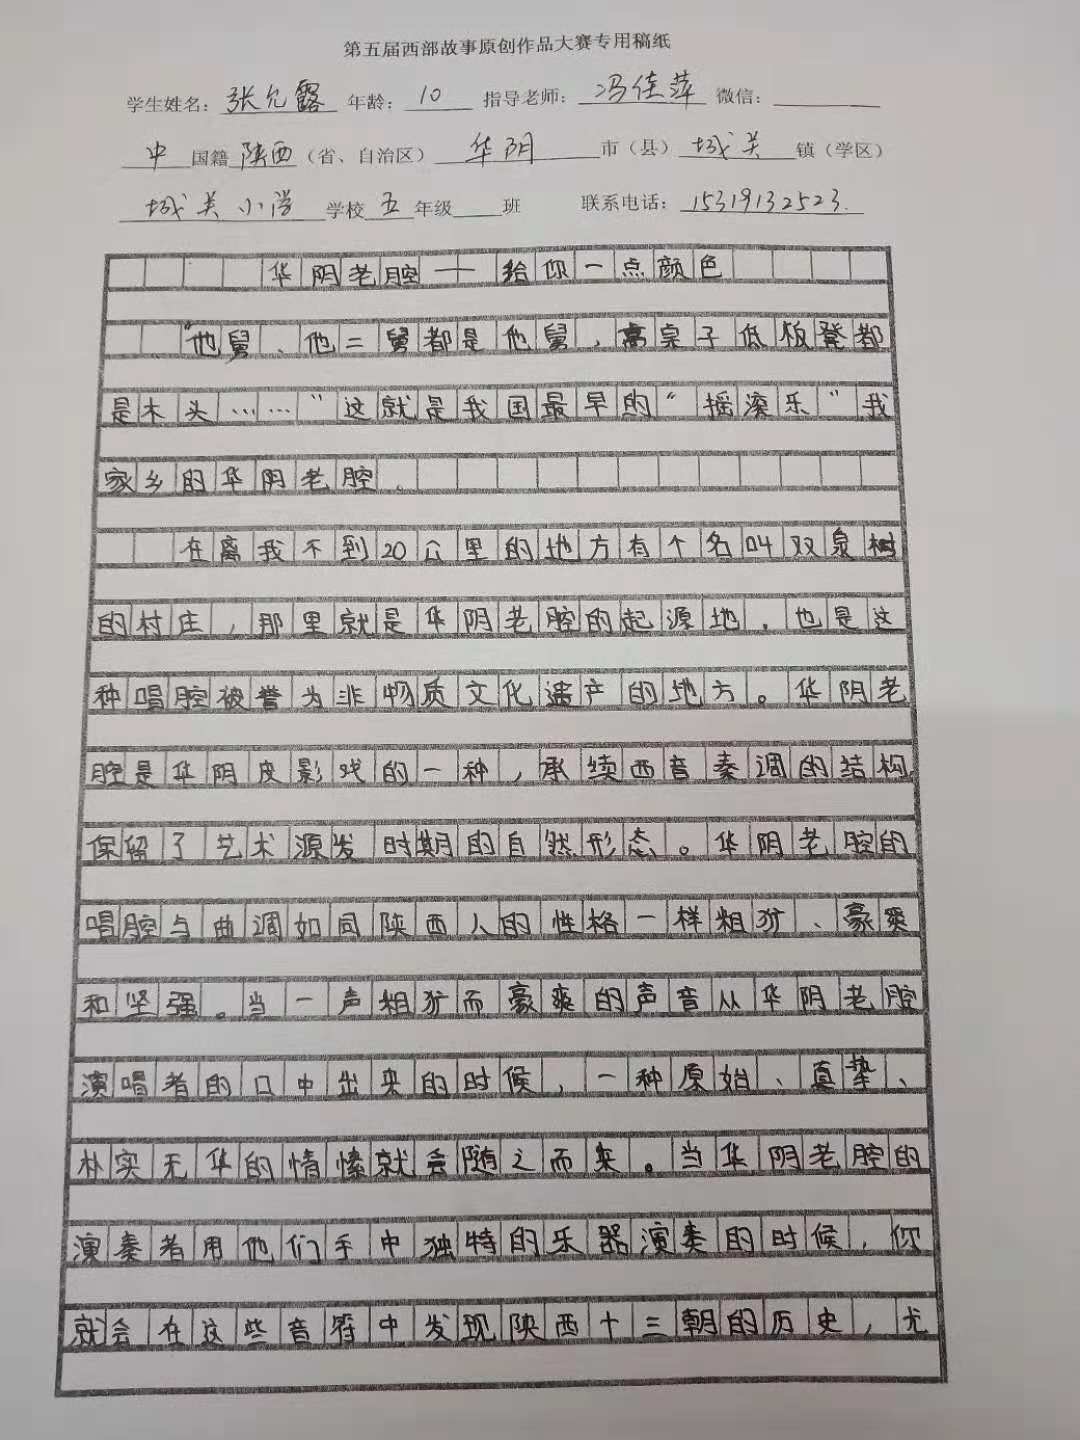 第五届西部故事原创作品大赛专用稿纸
学生姓名：张允露 年龄：10 指导老师：冯佳萍 微信：
中 国籍 陕西（省、自治区） 华阴 市（县） 城关 镇（学区）
城关小学 学校 五 年级 班 联系电话：15319132523.
华阴老腔——给你一点颜色
“他舅、他二舅都是他舅，高桌子低板凳都
是木头……”这就是我国最早的“摇滚乐”我
家乡的华阴老腔。
在离我不到20公里的地方有个名叫双泉树
的村庄，那里就是华阴老腔的起源地，也是这
种唱腔被誉为非物质文化遗产的地方。华阴老
腔是华阴皮影戏的一种，承续西音秦调的结构
保留了艺术源发时期的自然形态。华阴老腔的
唱腔与曲调如同陕西人的性格一样粗犷、豪爽
和坚强。当一声粗犷而豪爽的声音从华阴老腔
演唱者的口中出来的时候，一种原始、真挚、
朴实无华的情愫就会随之而来。当华阴老腔的
演奏者用他们手中独特的乐器演奏的时候，你
就会在这些音符中发现陕西十三朝的历史，尤